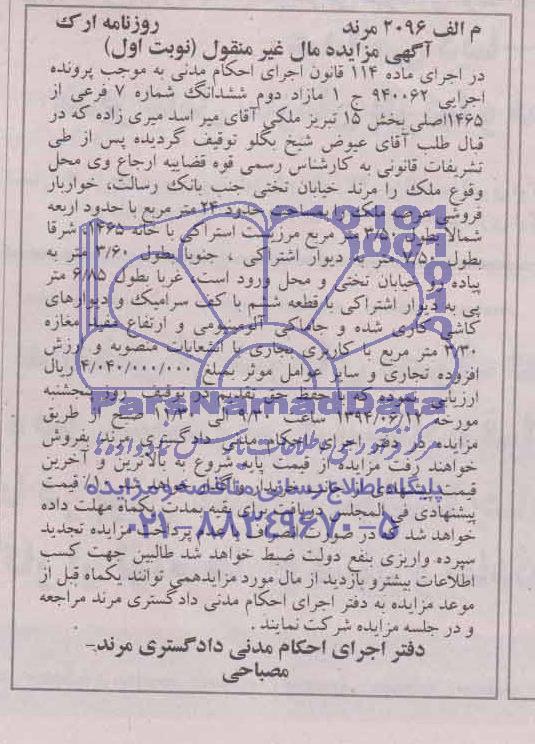 م الف ۲۰۹۶ مرند روزنامه ارک
آگهی مزایده مال غیر منقول (نوبت اول)
در اجرای ماده ۱۱۴ قانون اجرای احکام مدنی به موجب پرونده
اجرایی ۹۴۰۰۶۲ ج ۱ مازاد دوم ششدانگ شماره ۷ فرعی از
۱۴۶۵اصلی بخش ۱۵ تبریز ملکی آقای میر اسد میری زاده که در
قبال طلب آقای عیوض شیخ بگلو توقیف گردیده پس از طی
تشریفات قانونی به کارشناس رسمی قوه قضاییه ارجاع وی محل
وقوع ملک را مرند خیابان تختی جنب بانک رسالت، خواربار
فروشی عرصه ملک را بمساحت حدود ۲۴ متر مربع با حدود اربعه
شمالا بطول ۳/۵۰ متر مربع مرزیست اشتراکی با خانه ۱۴۶۵، شرقا
بطول ۷/۵۰ متر به دیوار اشتراکی ، جنوبا بطول ۳/۶۰ متر به
پیاده رو خیابان تختی و محل ورود است، غربا بطول ۶/۸۵ متر
پی به دیوار اشتراکی با قطعه ششم با کف سرامیک و دیوارهای
کاشی کاری شده و جاماکی آلومینیومی و ارتفاع مفید مغازه
۳/۳۰ متر مربع با کاربری تجاری با انشعابات منصوبه و ارزش
افزوده تجاری و سایر عوامل موثر بمبلغ ۴/۰۴۰/۰۰۰/۰۰۰ ریال
ارزیابی نموده که با حفظ حق تقدیم در توقیف روز پنجشنبه
مورخه ساعت ۹/۳۰ الی ۱۱/۳۰ صبح از طریق
مزایده در دفتر اجرای احکام مدنی دادگستری مرند بفروش
خواهند رفت مزایده از قیمت پایه شروع به بالاترین و آخرین
قیمت پیشنهادی از جانب خریدار واگذار خواهد شد ۱۰٪ قیمت
پیشنهادی فی المجلس دریافت برای بقیه بمدت یکماه مهلت داده
خواهد شد و در صورت انصراف یا عدم پرداخت مزایده تجدید
سپرده واریزی بنفع دولت ضبط خواهد شد طالبین جهت کسب
اطلاعات بیشترو بازدید از مال مورد مزایدهمی توانند یکماه قبل از
موعد مزایده به دفتر اجرای احکام مدنی دادگستری مرند مراجعه
و در جلسه مزایده شرکت نمایند .
دفتر اجرای احکام مدنی دادگستری مرند-
مصباحی
ParsNamadData
پایگاه اطلاع رسانی مناقصه و مزایده
۰۲۱-۸۸۳۴۹۶۷۰-۵